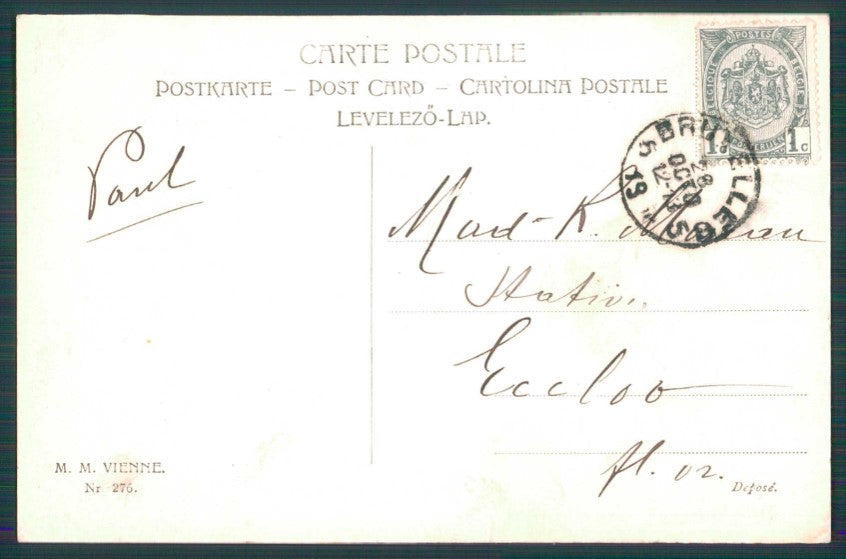 CARTE POSTALE
POSTKARTE – POST CARD – CARTOLINA POSTALE
LEVELEZŐ-LAP.
POSTES
BELGIQUE BELGIE
1c 1c
BRUXELLES 5
28
OCT
12-13
19
Paul
Mad - K.
Statir.
Eecloo
fl. or.
M. M. VIENNE.
Nr 276.
Deposé.